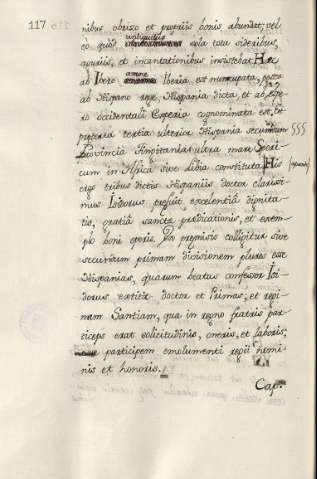 117
nibus obriso et propriis bonis abundat; vel
eò quòd antiquitùs sola tota sideribus,
auguriis, et incantationibus insistebat. Hæc
ab Ibero amne Iberia est nuncupata, postea
ab Hispano rege, Hispania dicta, et ab Hespe-
ro occidentali Esperia cognominata est, et
præterea tertia ulterior Hispania secundùm §§§
Provincia Tingitanias ultra mare Seri-
cum in Africa sive Lidia constituta. His
ergo tribus dictis Hispaniis doctor clarissi-
mus Isidorus præfuit excelentiâ dignita-
tis, gratiâ sanctæ prædicationis, et exem-
plo boni operis. In præmisis colligitur sive
secundùm primam divisionem plures esse
Hispanias, quarum beatus confesor Isi-
dorus extitit doctor et Primas; et regi-
nam Santiam, qua in regno fratris par-
ticeps erat solicitudinis, oneris, et laboris,
participem emolumenti regii homi-
nis et honoris.
Cap.